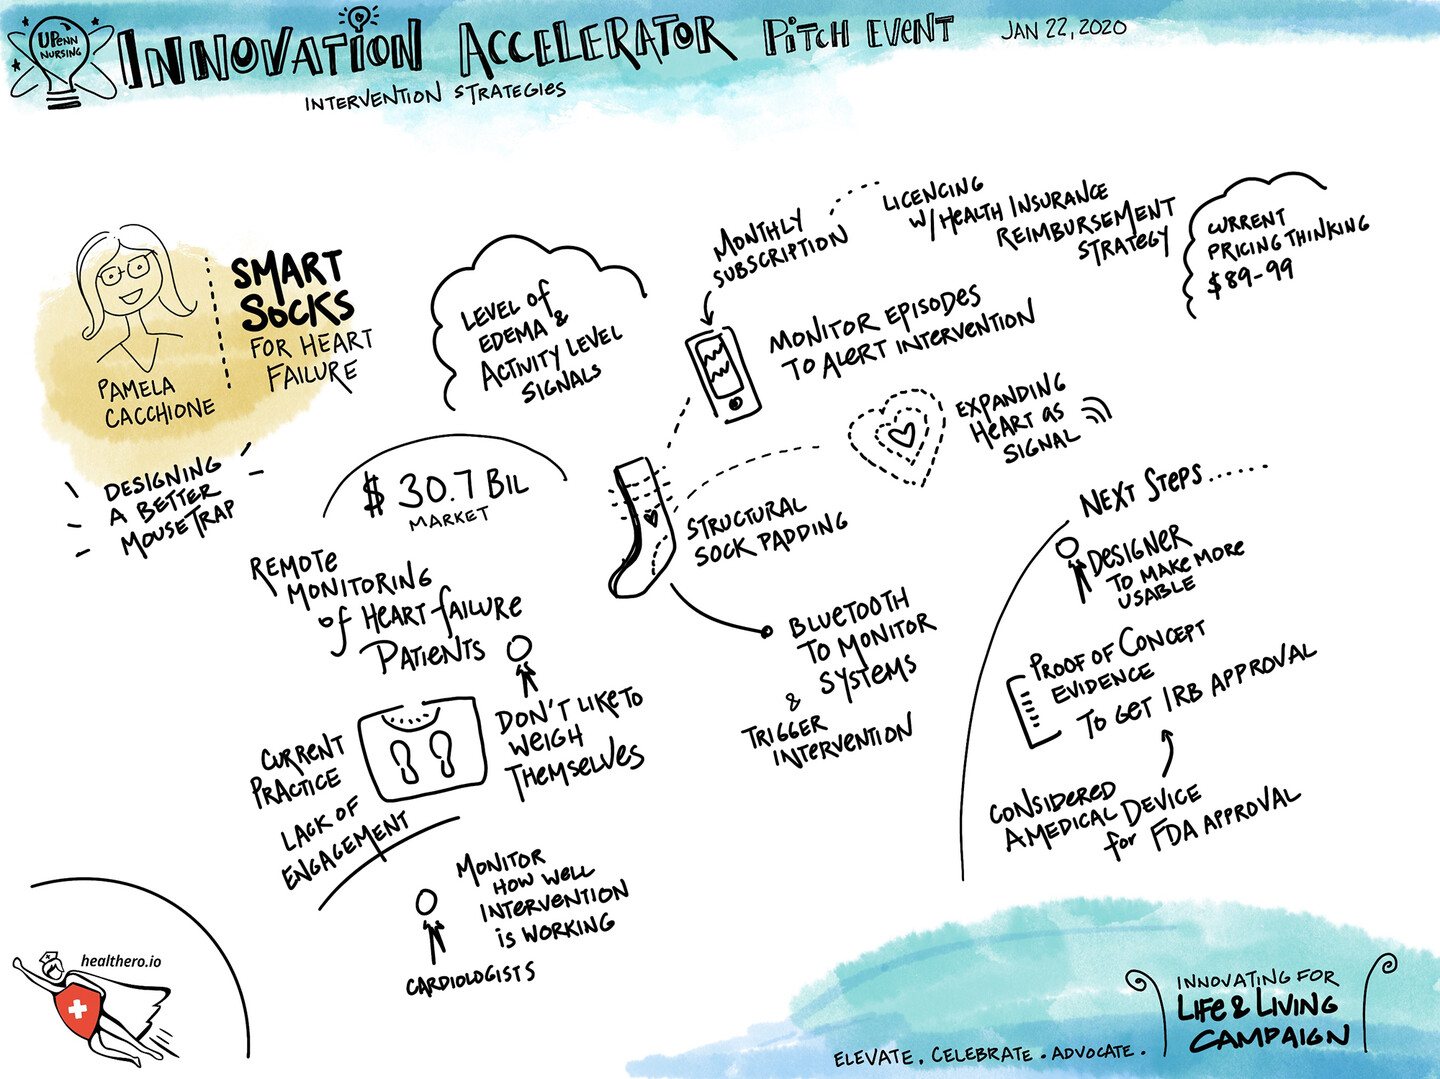 UPENN
NURSING
INNOVATION ACCELERATOR PITCH EVENT JAN 22, 2020
INTERVENTION STRATEGIES
PAMELA
CACCHIONE
SMART
SOCKS
FOR HEART
FAILURE
DESIGNING
A BETTER
MOUSETRAP
LEVEL of
EDEMA &
ACTIVITY LEVEL
SIGNALS
$ 30.7 BIL
MARKET
REMOTE
MONITORING
of HEART-failure
PATIENTS
CURRENT
PRACTICE
LACK OF
ENGAGEMENT
DON'T LIKE TO
WEIGH
THEMSELVES
MONITOR
HOW WELL
INTERVENTION
is WORKING
CARDIOLOGISTS
MONTHLY
SUBSCRIPTION
LICENCING
W/HEALTH INSURANCE
REIMBURSEMENT
STRATEGY
CURRENT
PRICING THINKING
$89-99
MONITOR EPISODES
TO ALERT INTERVENTION
EXPANDING
HEART as
SIGNAL
STRUCTURAL
SOCK PADDING
BLUETOOTH
TO MONITOR
SYSTEMS
&
TRIGGER
INTERVENTION
NEXT STEPS......
DESIGNER
TO MAKE MORE
USABLE
PROOF OF CONCEPT
EVIDENCE
TO GET IRB APPROVAL
CONSIDERED
A MEDICAL DEVICE
for FDA APPROVAL
healthero.io
INNOVATING FOR
LIFE & LIVING
CAMPAIGN
ELEVATE. CELEBRATE. ADVOCATE.